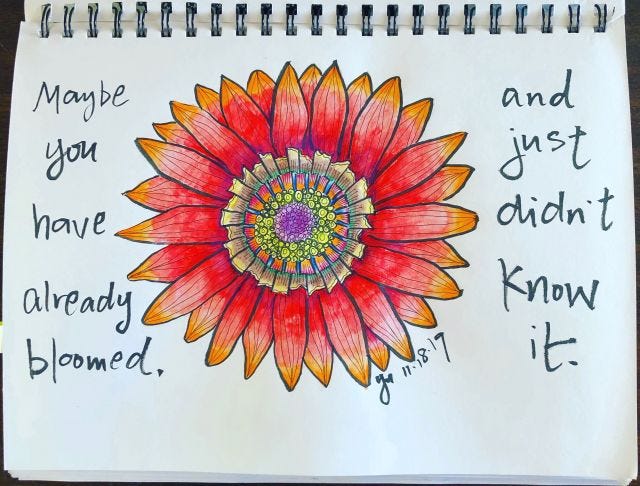 Maybe
you
have
already
bloomed.
and
just
didn't
know
it.
11.18.19